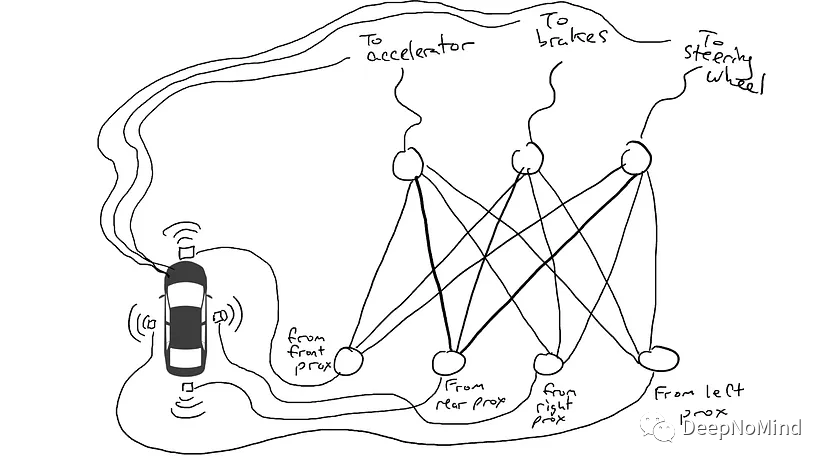 To
accelerator
To
brakes
To
steering
wheel
from
front
prox
From
rear prox
from
right
prox
From left
prox
DeepNoMind